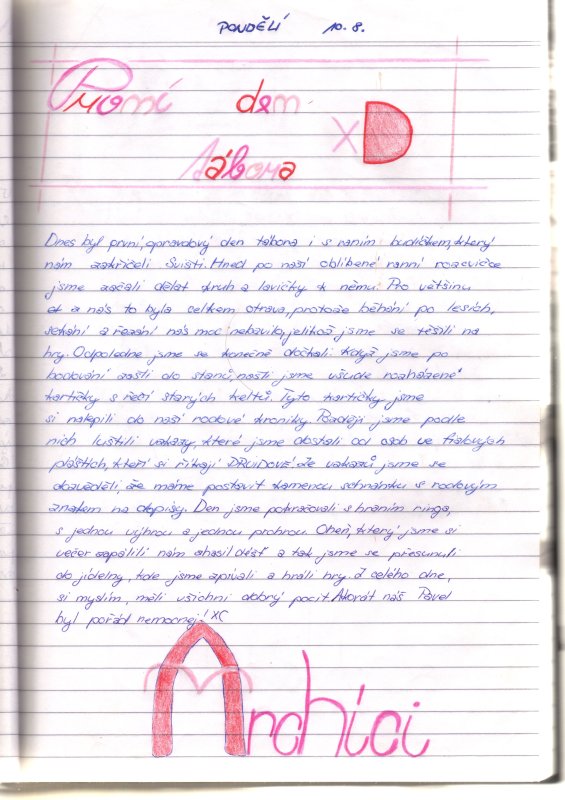 PONDĚLÍ 10. 8.
První den
XD
tábora
Dnes byl první, opravdový den tábora i s raním budíčkem, který
nám zakřičeli Svišti. Hned po naší oblíbené ranní rozcvičce
jsme začali dělat kruh a lavičky k němu. Pro většinu
z nás to byla celkem otrava, protože běhání po lesích,
sekání a řezání nás moc nebavilo, jelikož jsme se těšili na
hry. Odpoledne jsme se konečně dočkali. Když jsme po
bodování zašli do stanů, našli jsme všude rozházené
kartičky s řečí starých keltů. Tyto kartičky jsme
si nalepili do naší rodové kroniky. Později jsme podle
nich luštili vzkazy, které jsme dostali od osob ve fialových
pláštích, kteří si říkají DRUIDOVÉ. Ze vzkazů jsme se
dozvěděli, že máme postavit kamenou schránku s rodovým
znakem na dopisy. Den jsme pokračovali s hraním ringa,
s jednou výhrou a jednou prohrou. Oheň, který jsme si
večer zapálili nám uhasil déšť a tak jsme se přesunuli
do jídelny, kde jsme zpívali a hráli hry. Z celého dne,
si myslím, měli všichni dobrý pocit. Akorát náš Pavel
byl pořád nemocnej! XC
Archíci